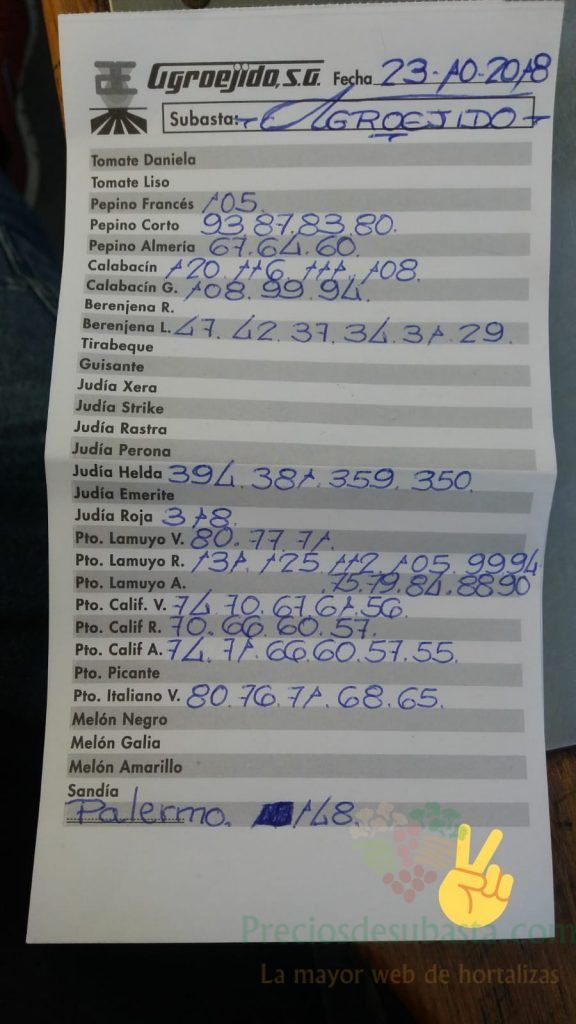 Agroejido, S.A. Fecha 23-10-2018
Subasta: AGROEJIDO
Tomate Daniela
Tomate Liso
Pepino Francés 105.
Pepino Corto 93.87.83.80.
Pepino Almería 67.64.60.
Calabacín 120.116.111.108.
Calabacín G. 108.99.94.
Berenjena R.
Berenjena L. 47.42.37.34.31.29.
Tirabeque
Guisante
Judía Xera
Judía Strike
Judía Rastra
Judía Perona
Judía Helda 394.381.359.350.
Judía Emerite
Judía Roja 318.
Pto. Lamuyo V. 80.77.71.
Pto. Lamuyo R. 131.125.112.105.9994
Pto. Lamuyo A. .75.79.84.8890
Pto. Calif. V. 74.70.67.61.56.
Pto. Calif R. 70.66.60.57.
Pto. Calif A. 74.71.66.60.57.55.
Pto. Picante
Pto. Italiano V. 80.76.71.68.65.
Melón Negro
Melón Galia
Melón Amarillo
Sandía
Palermo. 148
Preciosdesubasta.com
La mayor web de hortalizas